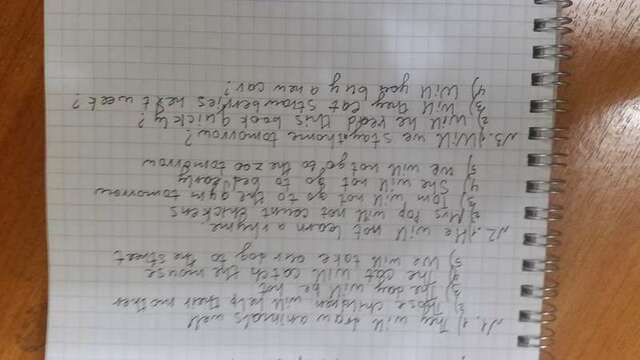 №1. 1) They will draw animals well
2) Those children will help their mother
3) The day will be hot
4) The cat will catch the mouse
5) We will take our dog to the street
№2. 1) He will not learn a rhyme
2) Mrs Pop will not count chickens
3) Tom will not go to the gym tomorrow
4) She will not go to bed early
5) we will not go to the zoo tomorrow
№3. 1) Will we stay home tomorrow?
2) Will he read this book quickly?
3) Will they eat strawberries next week?
4) Will you buy a new car?